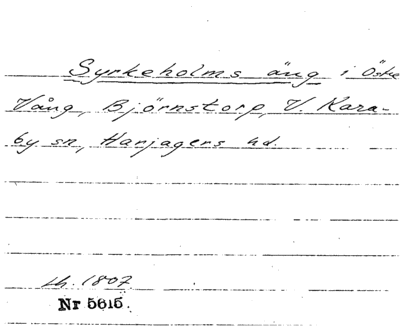 Syrkeholms äng i Östre
Vång, Björnstorp, V. Kara-
by sn, Harjagers hd.
lh. 1807
Nr 5615.